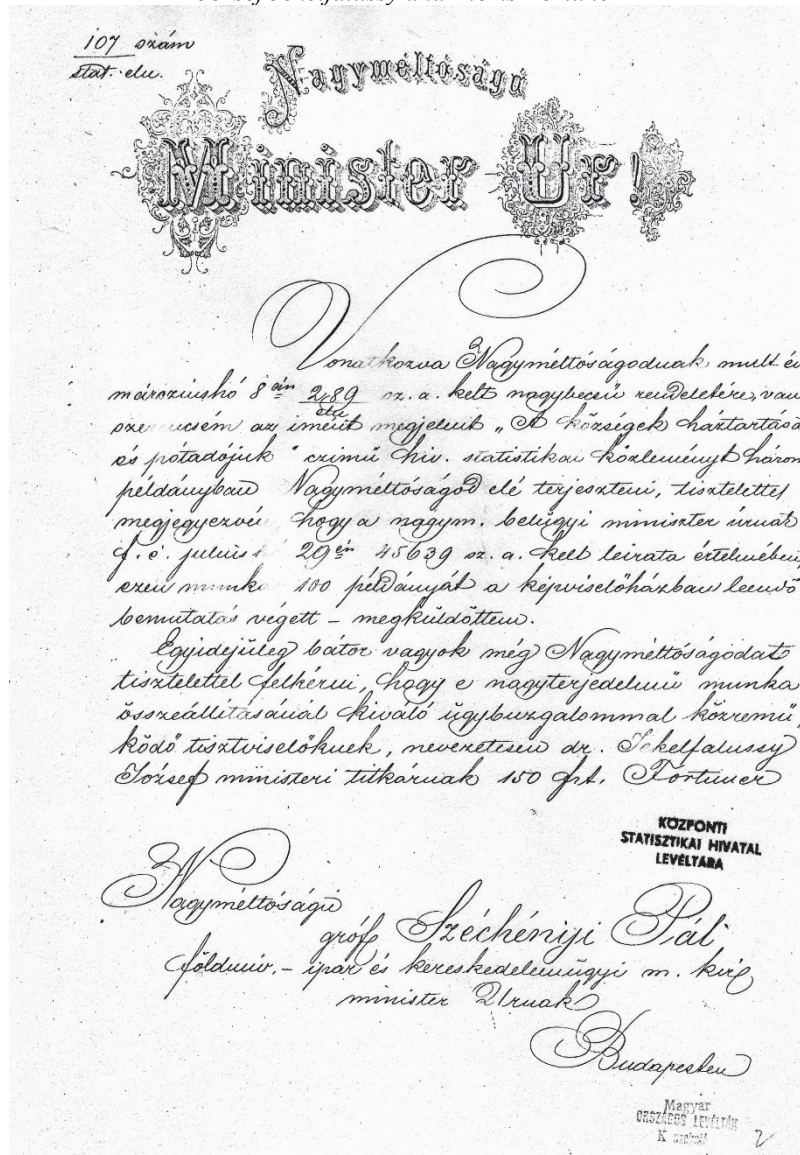 107 szám
stat. eln.
Nagyméltóságú
Minister Úr!
Vonatkozva Nagyméltóságodnak mult év
márcziushó 8 án 289 sz. a. kelt nagybecsü rendeletére, van
eln
szerencsém az imént megjelent „A községek háztartása
és pótadójuk" czimű hiv. statistikai közleményt három
példányban Nagyméltóságod elé terjeszteni, tisztelettel
megjegyezvén hogy a nagym. belügyi minister úrnak
f. é. julius 29 én 45639 sz. a. kelt leirata értelmében,
ezen munka 100 példányát a képviselőházban leendő
bemutatás végett – megküldöttem.
Egyidejüleg bátor vagyok még Nagyméltóságodat
tisztelettel felkérni, hogy e nagyterjedelmü munka
összeállitásánál kiváló ügybuzgalommal közremü,
ködő tisztviselőknek, nevezetesen dr. Jekelfalussy
József ministeri titkárnak 150 frt. Fortuner
KÖZPONTI
STATISZTIKAI HIVATAL
LEVÉLTÁRA
Nagyméltóságú
gróf Széchényi Pál
földmiv. – ipar és kereskedelemügyi m. kir.
minister Urnak
Budapesten
Magyar
ORSZÁGOS LEVÉLTÁR
K
2